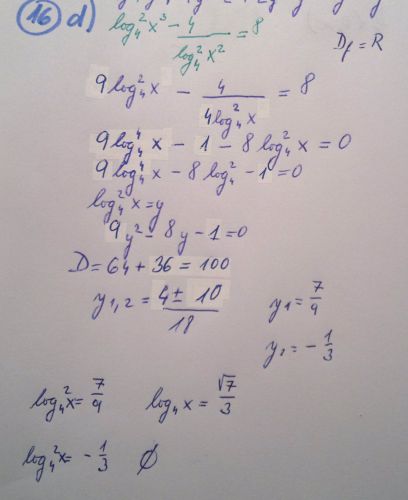 16 d)
log₄²x³ - 4/log₄²x² = 8
D_f = R
9log₄²x - 4/4log₄²x = 8
9log₄⁴x - 1 - 8log₄²x = 0
9log₄⁴x - 8log₄² - 1 = 0
log₄²x = y
9y² - 8y - 1 = 0
D = 64 + 36 = 100
y₁,₂ = 4 ± 10/18
y₁ = 7/9
y₂ = - 1/3
log₄²x = 7/9 log₄x = √7/3
log₄²x = - 1/3 ∅